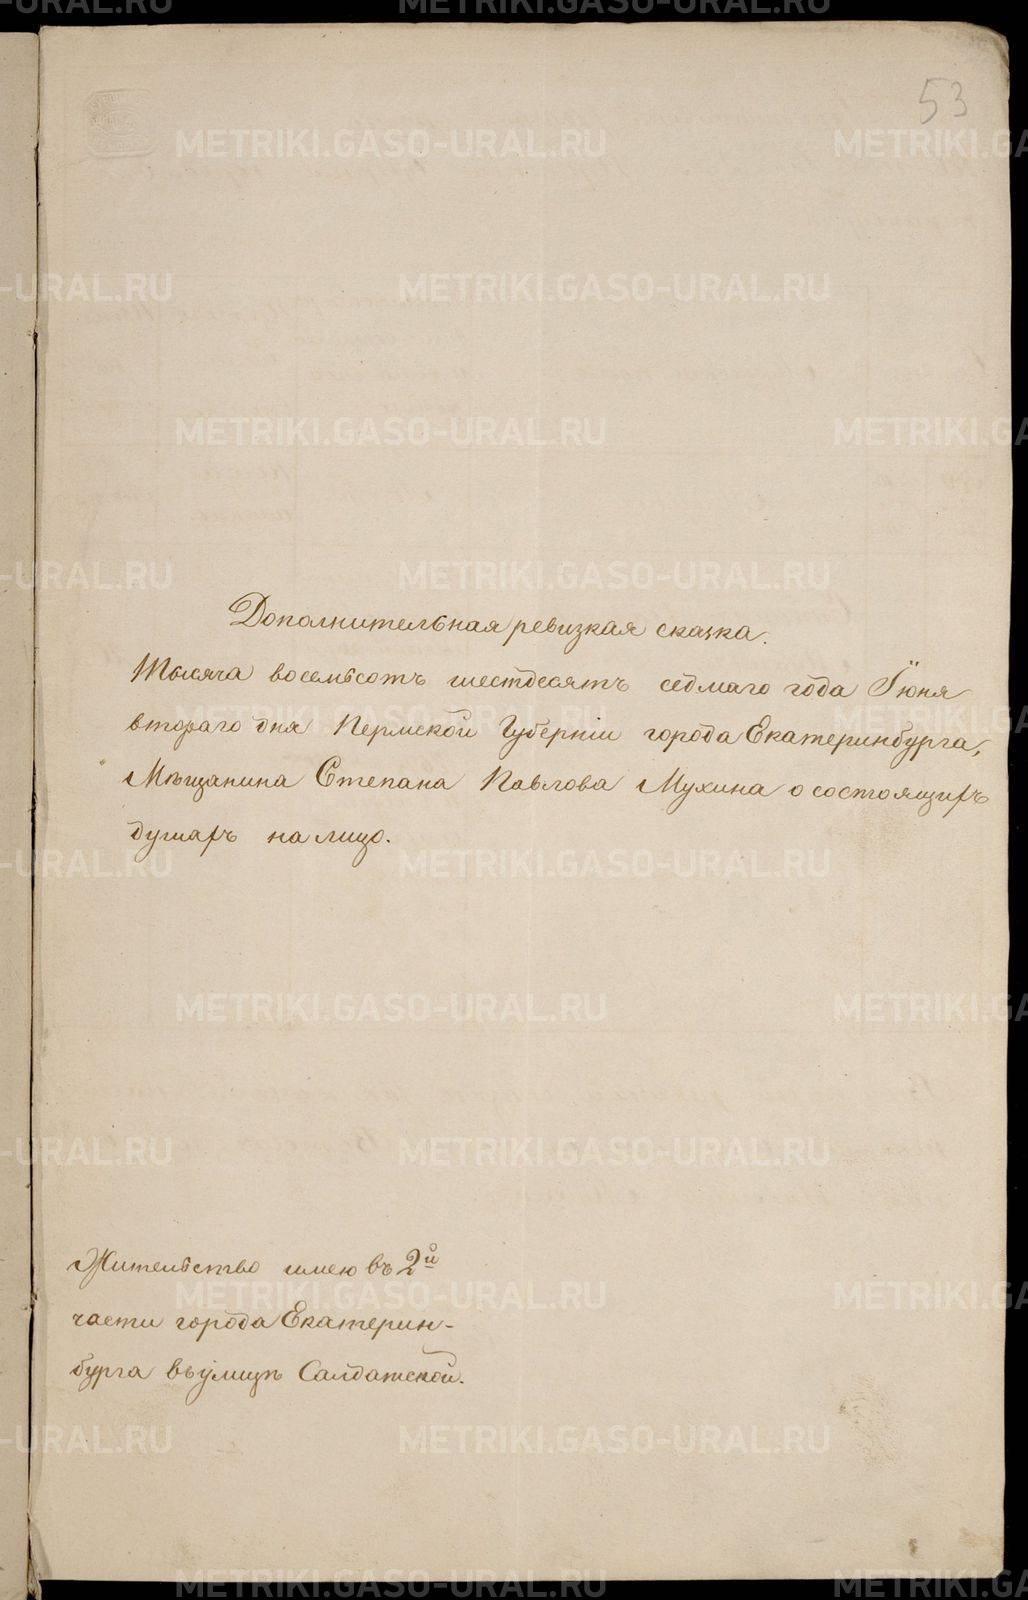 53
Дополнительная ревизкая сказка.
Тысяча восемьсотъ шестдесятъ седмаго года Іюня
втораго дня Пермской Губерніи города Екатеринбурга,
Мѣщанина Степана Павлова Мухина о состоящихъ
душахъ на лицо.
Жительство имею въ 2й
части города Екатерин-
бурга въ улицѣ Салдатской.
METRIKI.GASO-URAL.RU